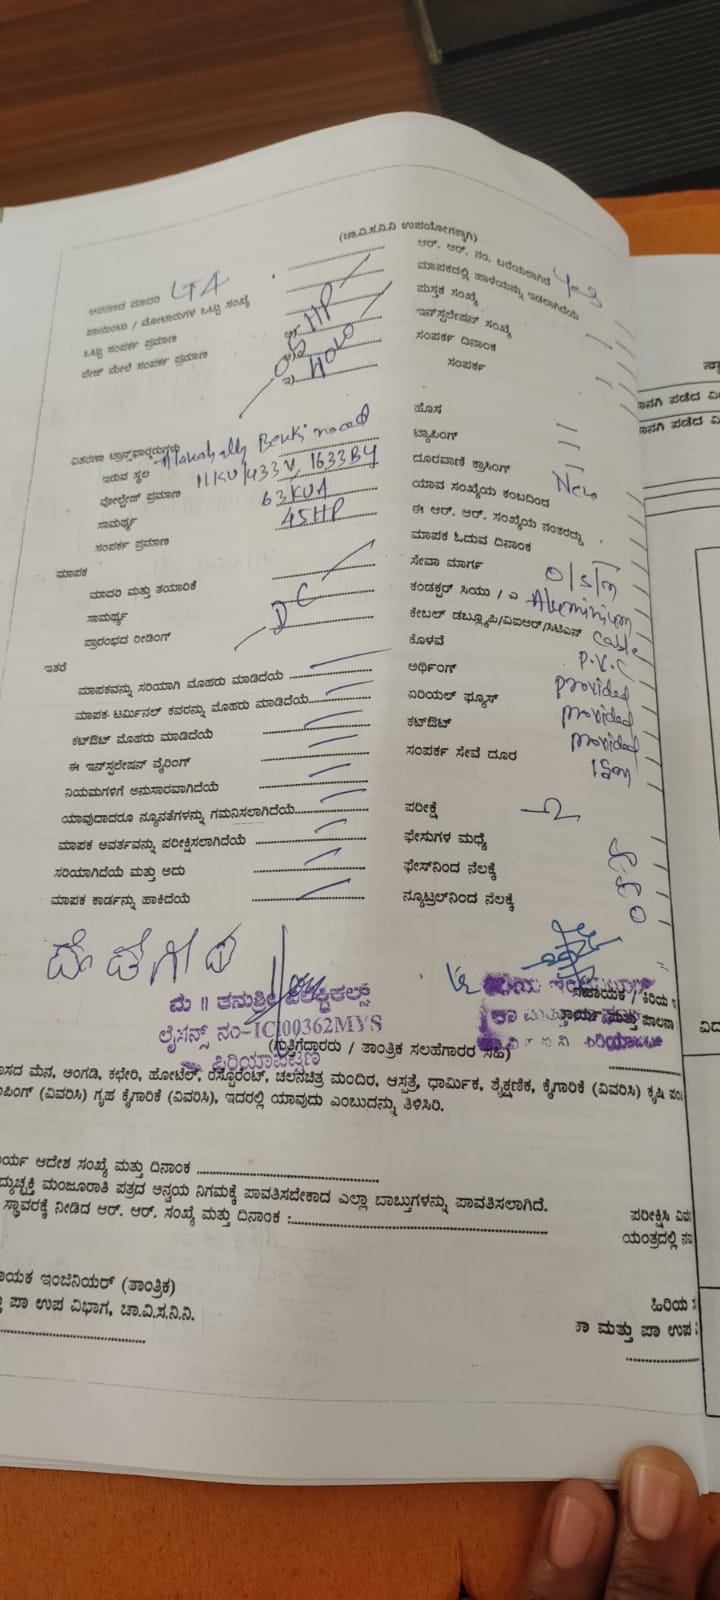 (ಚಾ.ವಿ.ಸ.ನಿ.ನಿ ಉಪಯೋಗಕ್ಕಾಗಿ)
ಆವರಣದ ಮಾದರಿ
ಪಾಯಿಂಟು / ಮೋಟಾರುಗಳ ಒಟ್ಟು ಸಂಖ್ಯೆ
ಒಟ್ಟು ಸಂಪರ್ಕ ಪ್ರಮಾಣ HP
ಪೇಜ್ ಮೇಲೆ ಸಂಪರ್ಕ ಪ್ರಮಾಣ
ವಿತರಣಾ ಟ್ರಾನ್ಸ್‌ಫಾರ್ಮರುಗಳು
ಇರುವ ಸ್ಥಳ
ವೋಲ್ಟೇಜ್ ಪ್ರಮಾಣ 11KV/433V,
ಸಾಮರ್ಥ್ಯ 63KVA
ಸಂಪರ್ಕ ಪ್ರಮಾಣ 45HP
ಮಾಪಕ
ಮಾದರಿ ಮತ್ತು ತಯಾರಿಕೆ
ಸಾಮರ್ಥ್ಯ
ಪ್ರಾರಂಭದ ರೀಡಿಂಗ್ DC
ಇತರೆ
ಮಾಪಕವನ್ನು ಸರಿಯಾಗಿ ಮೊಹರು ಮಾಡಿದೆಯೆ
ಮಾಪಕ ಟರ್ಮಿನಲ್ ಕವರನ್ನು ಮೊಹರು ಮಾಡಿದೆಯೆ
ಕಟ್‌ಔಟ್ ಮೊಹರು ಮಾಡಿದೆಯೆ
ಈ ಇನ್‌ಸ್ಟಲೇಷನ್ ವೈರಿಂಗ್
ನಿಯಮಗಳಿಗೆ ಅನುಸಾರವಾಗಿದೆಯೆ
ಯಾವುದಾದರೂ ನ್ಯೂನತೆಗಳನ್ನು ಗಮನಿಸಲಾಗಿದೆಯೆ
ಮಾಪಕ ಆವರ್ತವನ್ನು ಪರೀಕ್ಷಿಸಲಾಗಿದೆಯೆ
ಸರಿಯಾಗಿದೆಯೆ ಮತ್ತು ಅದು
ಮಾಪಕ ಕಾರ್ಡನ್ನು ಹಾಕಿದೆಯೆ
ಆರ್. ಆರ್. ನಂ. ಬರೆಯಲಾಗಿದೆ Yes
ಮಾಪಕದಲ್ಲಿ ಹಾಳೆಯನ್ನು ಇಡಲಾಗಿದೆಯೆ
ಪುಸ್ತಕ ಸಂಖ್ಯೆ
ಇನ್‌ಸ್ಟಲೇಷನ್ ಸಂಖ್ಯೆ
ಸಂಪರ್ಕ ದಿನಾಂಕ
ಸಂಪರ್ಕ
ಹೊಸ
ಟ್ಯಾಪಿಂಗ್
ದೂರವಾಣಿ ಕ್ರಾಸಿಂಗ್
ಯಾವ ಸಂಖ್ಯೆಯ ಕಂಬದಿಂದ New
ಈ ಆರ್. ಆರ್. ಸಂಖ್ಯೆಯ ನಂತರದ್ದು
ಮಾಪಕ ಓದುವ ದಿನಾಂಕ
ಸೇವಾ ಮಾರ್ಗ
ಕಂಡಕ್ಟರ್ ಸಿಯು / ಎ Aluminium
ಕೇಬಲ್ ಡಬ್ಲ್ಯೂಪಿ/ವಿಐಆರ್/ಸಿಟಿಎಸ್ cable
ಕೊಳವೆ P.V.C
ಅರ್ಥಿಂಗ್ provided
ಏರಿಯಲ್ ಫ್ಯೂಸ್ provided
ಕಟ್‌ಔಟ್ provided
ಸಂಪರ್ಕ ಸೇವೆ ದೂರ 15m
ಪರೀಕ್ಷೆ
ಫೇಸುಗಳ ಮಧ್ಯೆ
ಫೇಸ್‌ನಿಂದ ನೆಲಕ್ಕೆ
ನ್ಯೂಟ್ರಲ್‌ನಿಂದ ನೆಲಕ್ಕೆ
ಮೆ ॥ ತನುಶ್ರೀ ಎಲೆಕ್ಟ್ರಿಕಲ್ಸ್
ಲೈಸನ್ಸ್ ನಂ-IC00362MYS
ಪಿರಿಯಾಪಟ್ಟಣ
(ಗುತ್ತಿಗೆದಾರರು / ತಾಂತ್ರಿಕ ಸಲಹೆಗಾರರ ಸಹಿ)
ಸಹಾಯಕ / ಕಿರಿಯ ಇ
ಕಾರ್ಯ ಮತ್ತು ಪಾಲನಾ
ಾಸದ ಮನೆ, ಅಂಗಡಿ, ಕಛೇರಿ, ಹೋಟೆಲ್, ರೆಸ್ಟೊರೆಂಟ್, ಚಲನಚಿತ್ರ ಮಂದಿರ, ಆಸ್ಪತ್ರೆ, ಧಾರ್ಮಿಕ, ಶೈಕ್ಷಣಿಕ, ಕೈಗಾರಿಕೆ (ವಿವರಿಸಿ) ಕೃಷಿ ಪಂ
ಪಿಂಗ್ (ವಿವರಿಸಿ) ಗೃಹ ಕೈಗಾರಿಕೆ (ವಿವರಿಸಿ), ಇದರಲ್ಲಿ ಯಾವುದು ಎಂಬುದನ್ನು ತಿಳಿಸಿರಿ.
ರ್ಯ ಆದೇಶ ಸಂಖ್ಯೆ ಮತ್ತು ದಿನಾಂಕ
ದ್ಯುಚ್ಛಕ್ತಿ ಮಂಜೂರಾತಿ ಪತ್ರದ ಅನ್ವಯ ನಿಗಮಕ್ಕೆ ಪಾವತಿಸಬೇಕಾದ ಎಲ್ಲಾ ಬಾಬ್ತುಗಳನ್ನು ಪಾವತಿಸಲಾಗಿದೆ.
ಸ್ಥಾವರಕ್ಕೆ ನೀಡಿದ ಆರ್. ಆರ್. ಸಂಖ್ಯೆ ಮತ್ತು ದಿನಾಂಕ :
ಪರೀಕ್ಷಿಸಿ ವಿವ
ಯಂತ್ರದಲ್ಲಿ ನಾ
ಾಯಕ ಇಂಜಿನಿಯರ್ (ತಾಂತ್ರಿಕ)
ಪಾ ಉಪ ವಿಭಾಗ, ಚಾ.ವಿ.ಸ.ನಿ.ನಿ.
ಹಿರಿಯ ಸ
ಕಾ ಮತ್ತು ಪಾ ಉಪ